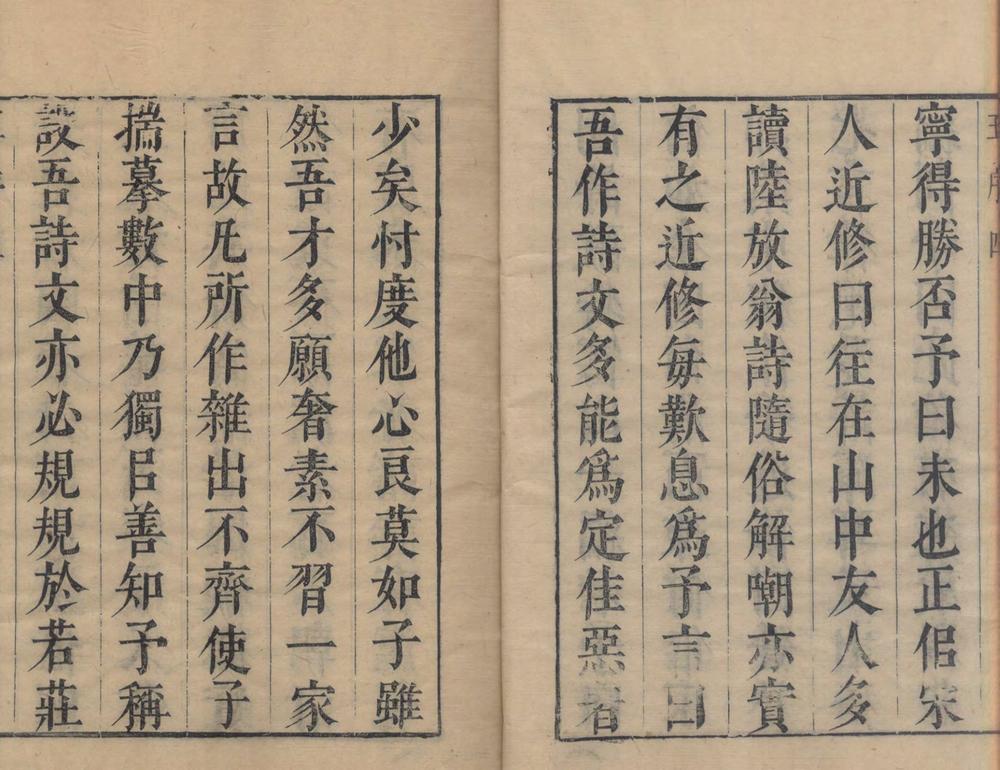 寧得勝否予曰未也正侣宋
人近修曰往在山中友人多
讀陸放翁詩隨俗解嘲亦實
有之近修每歎息爲予言曰
吾作詩文多能爲定佳惡者
少矣忖度他心良莫如子雖
然吾才多願奢素不習一家
言故凡所作雜出不齊使子
揣摹數中乃獨㠯善知予稱
設吾詩文亦必規規於若莊